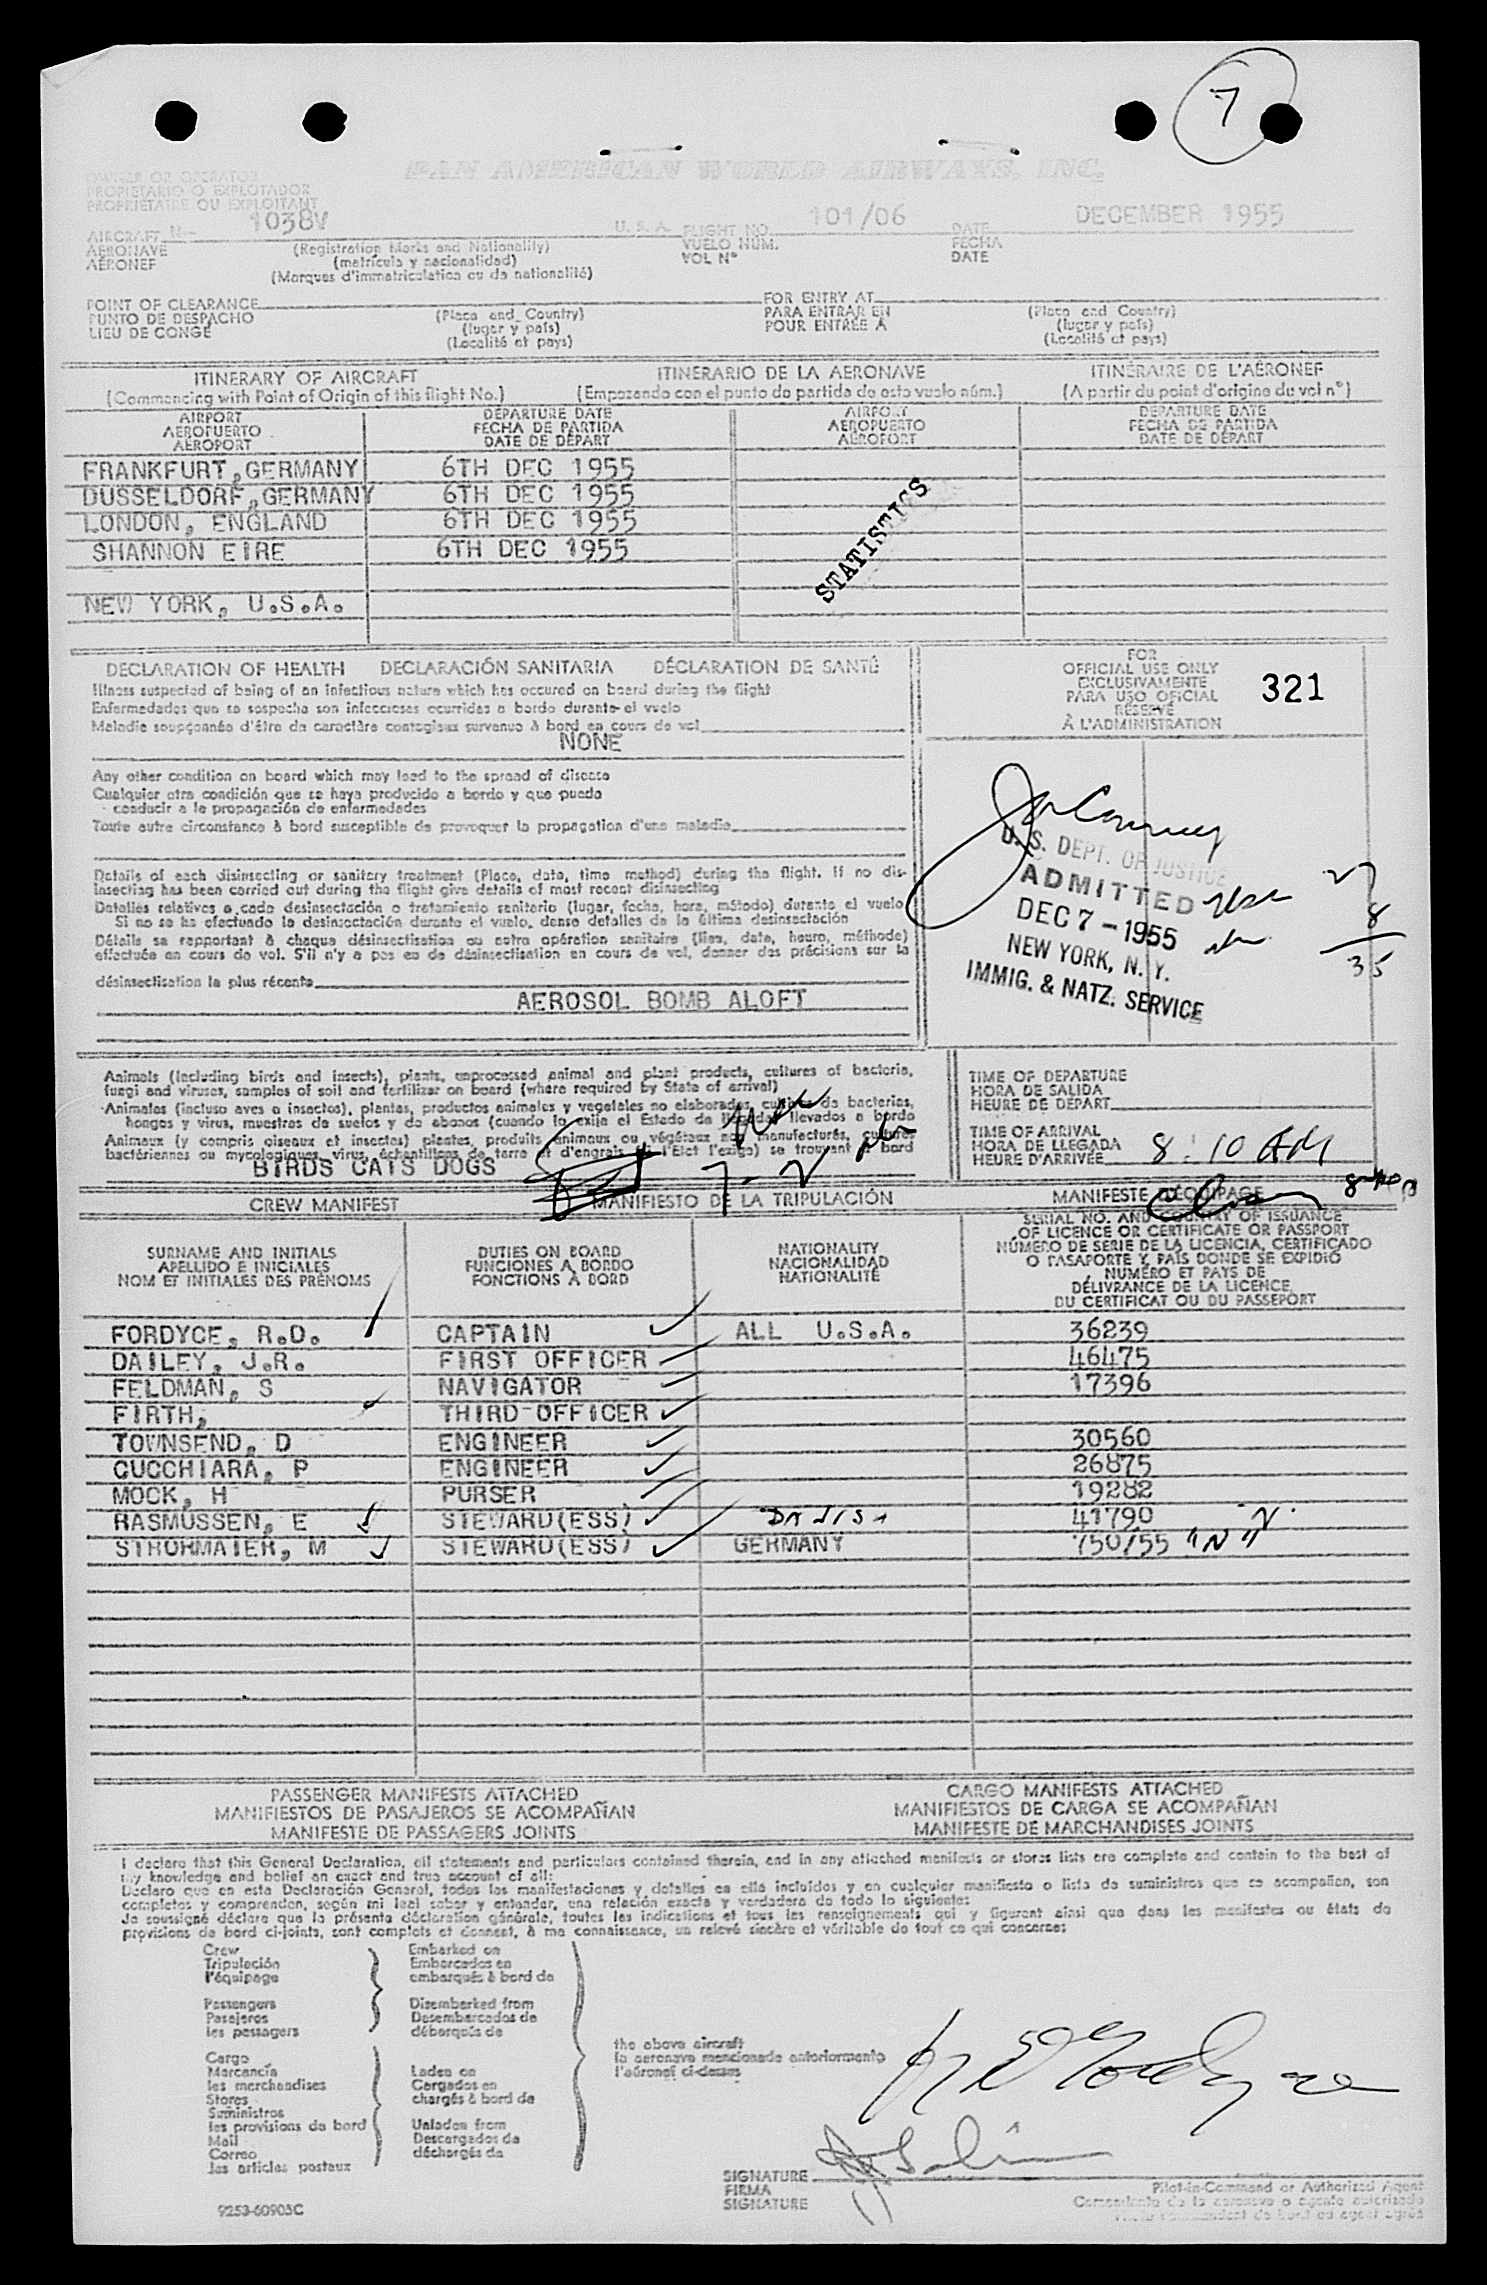 7
PAN AMERICAN WORLD AIRWAYS, INC.
OWNER OR OPERATOR
PROPIETARIO O EXPLOTADOR
PROPRIETAIRE OU EXPLOITANT
AIRCRAFT N- 1038V U.S.A. FLIGHT NO. 101/06 DATE DECEMBER 1955
AERONAVE (Registration Marks and Nationality) VUELO NÚM. FECHA
AÉRONEF (matrícula y nacionalidad) VOL Nº DATE
(Marques d'immatriculation ou de nationalité)
POINT OF CLEARANCE FOR ENTRY AT
PUNTO DE DESPACHO (Place and Country) PARA ENTRAR EN (Place and Country)
LIEU DE CONGÉ (lugar y país) POUR ENTRÉE À (lugar y país)
(Localité et pays) (Localité et pays)
ITINERARY OF AIRCRAFT ITINERARIO DE LA AERONAVE ITINÉRAIRE DE L'AÉRONEF
(Commencing with Point of Origin of this flight No.) (Empezando con el punto de partida de este vuelo núm.) (A partir du point d'origine du vol nº)
AIRPORT DEPARTURE DATE AIRPORT DEPARTURE DATE
AEROPUERTO FECHA DE PARTIDA AEROPUERTO FECHA DE PARTIDA
AÉROPORT DATE DE DÉPART AÉROPORT DATE DE DÉPART
FRANKFURT,GERMANY 6TH DEC 1955
DUSSELDORF,GERMANY 6TH DEC 1955
LONDON, ENGLAND 6TH DEC 1955
SHANNON EIRE 6TH DEC 1955
STATISTICS
NEW YORK, U.S.A.
DECLARATION OF HEALTH DECLARACIÓN SANITARIA DÉCLARATION DE SANTÉ
Illness suspected of being of an infectious nature which has occured on board during the flight
Enfermedades que se sospecha son infecciosas ocurridas a bordo durante el vuelo
Maladie soupçonnée d'être de caractère contagieux survenue à bord en cours de vol
NONE
Any other condition on board which may lead to the spread of disease
Cualquier otra condición que se haya producido a bordo y que pueda
conducir a la propagación de enfermedades
Toute autre circonstance à bord susceptible de provoquer la propagation d'une maladie
Details of each disinsecting or sanitary treatment (Place, date, time method) during the flight. If no dis-
insecting has been carried out during the flight give details of most recent disinsecting
Detalles relativos a cada desinsectación o tratamiento sanitario (lugar, fecha, hora, método) durante el vuelo
Si no se ha efectuado la desinsectación durante el vuelo, dense detalles de la última desinsectación
Détails se rapportant à chaque désinsectisation ou autre opération sanitaire (lieu, date, heure, méthode)
effectuée en cours de vol. S'il n'y a pas eu de désinsectisation en cours de vol, donner des précisions sur la
désinsectisation la plus récente
AEROSOL BOMB ALOFT
FOR
OFFICIAL USE ONLY
EXCLUSIVAMENTE
PARA USO OFICIAL
RÉSERVÉ
À L'ADMINISTRATION
321
U.S. DEPT. OF JUSTICE
ADMITTED
DEC 7 - 1955
NEW YORK, N. Y.
IMMIG. & NATZ. SERVICE
27
8
35
Animals (including birds and insects), plants, unprocessed animal and plant products, cultures of bacteria,
fungi and viruses, samples of soil and fertilizer on board (where required by State of arrival)
Animales (incluso aves o insectos), plantas, productos animales y vegetales no elaborados, cultivos de bacterias,
hongos y virus, muestras de suelos y de abonos (cuando lo exija el Estado de llegada) llevados a bordo
Animaux (y compris oiseaux et insectes) plantes, produits animaux ou végétaux non manufacturés, cultures
bactériennes ou mycologiques, virus, échantillons de terre et d'engrais (si l'État l'exige) se trouvant à bord
BIRDS CATS DOGS
TIME OF DEPARTURE
HORA DE SALIDA
HEURE DE DÉPART
TIME OF ARRIVAL
HORA DE LLEGADA
HEURE D'ARRIVÉE 8:10 AM
CREW MANIFEST MANIFIESTO DE LA TRIPULACIÓN MANIFESTE D'ÉQUIPAGE
SURNAME AND INITIALS
APELLIDO E INICIALES
NOM ET INITIALES DES PRÉNOMS
DUTIES ON BOARD
FUNCIONES A BORDO
FONCTIONS À BORD
NATIONALITY
NACIONALIDAD
NATIONALITÉ
SERIAL NO. AND COUNTRY OF ISSUANCE
OF LICENCE OR CERTIFICATE OR PASSPORT
NÚMERO DE SERIE DE LA LICENCIA, CERTIFICADO
O PASAPORTE Y PAÍS DONDE SE EXPIDIÓ
NUMÉRO ET PAYS DE
DÉLIVRANCE DE LA LICENCE,
DU CERTIFICAT OU DU PASSEPORT
FORDYCE, R.D. CAPTAIN ALL U.S.A. 36239
DAILEY, J.R. FIRST OFFICER 46475
FELDMAN, S NAVIGATOR 17396
FIRTH, THIRD OFFICER
TOWNSEND, D ENGINEER 30560
CUCCHIARA, P ENGINEER 26875
MOCK, H PURSER 19282
RASMUSSEN, E STEWARD(ESS) DANISH 41790 N.
STROHMAIER, M STEWARD(ESS) GERMANY 750/55 "N"
PASSENGER MANIFESTS ATTACHED CARGO MANIFESTS ATTACHED
MANIFIESTOS DE PASAJEROS SE ACOMPAÑAN MANIFIESTOS DE CARGA SE ACOMPAÑAN
MANIFESTE DE PASSAGERS JOINTS MANIFESTE DE MARCHANDISES JOINTS
I declare that this General Declaration, all statements and particulars contained therein, and in any attached manifests or stores lists are complete and contain to the best of
my knowledge and belief an exact and true account of all:
Declaro que en esta Declaración General, todas las manifestaciones y detalles en ella incluidos y en cualquier manifiesto o lista de suministros que se acompañen, son
completos y comprenden, según mi leal saber y entender, una relación exacta y verdadera de todo lo siguiente:
Je soussigné déclare que la présente déclaration générale, toutes les indications et tous les renseignements qui y figurent ainsi que dans les manifestes ou états de
provisions de bord ci-joints, sont complets et donnent, à ma connaissance, un relevé sincère et véritable de tout ce qui concerne:
Crew Embarked on
Tripulación Embarcados en
l'équipage embarqués à bord de
Passengers Disembarked from
Pasajeros Desembarcados de
les passagers débarqués de
the above aircraft
la aeronave mencionada anteriormente
l'aéronef ci-dessus
Cargo
Mercancía Laden on
les marchandises Cargados en
Stores chargés à bord de
Suministros
les provisions de bord Unladen from
Mail Descargados de
Correo déchargés de
les articles postaux
R D Fordyce
SIGNATURE
FIRMA
SIGNATURE
Pilot-in-Command or Authorized Agent
Comandante de la aeronave o agente autorizado
9253-60905C